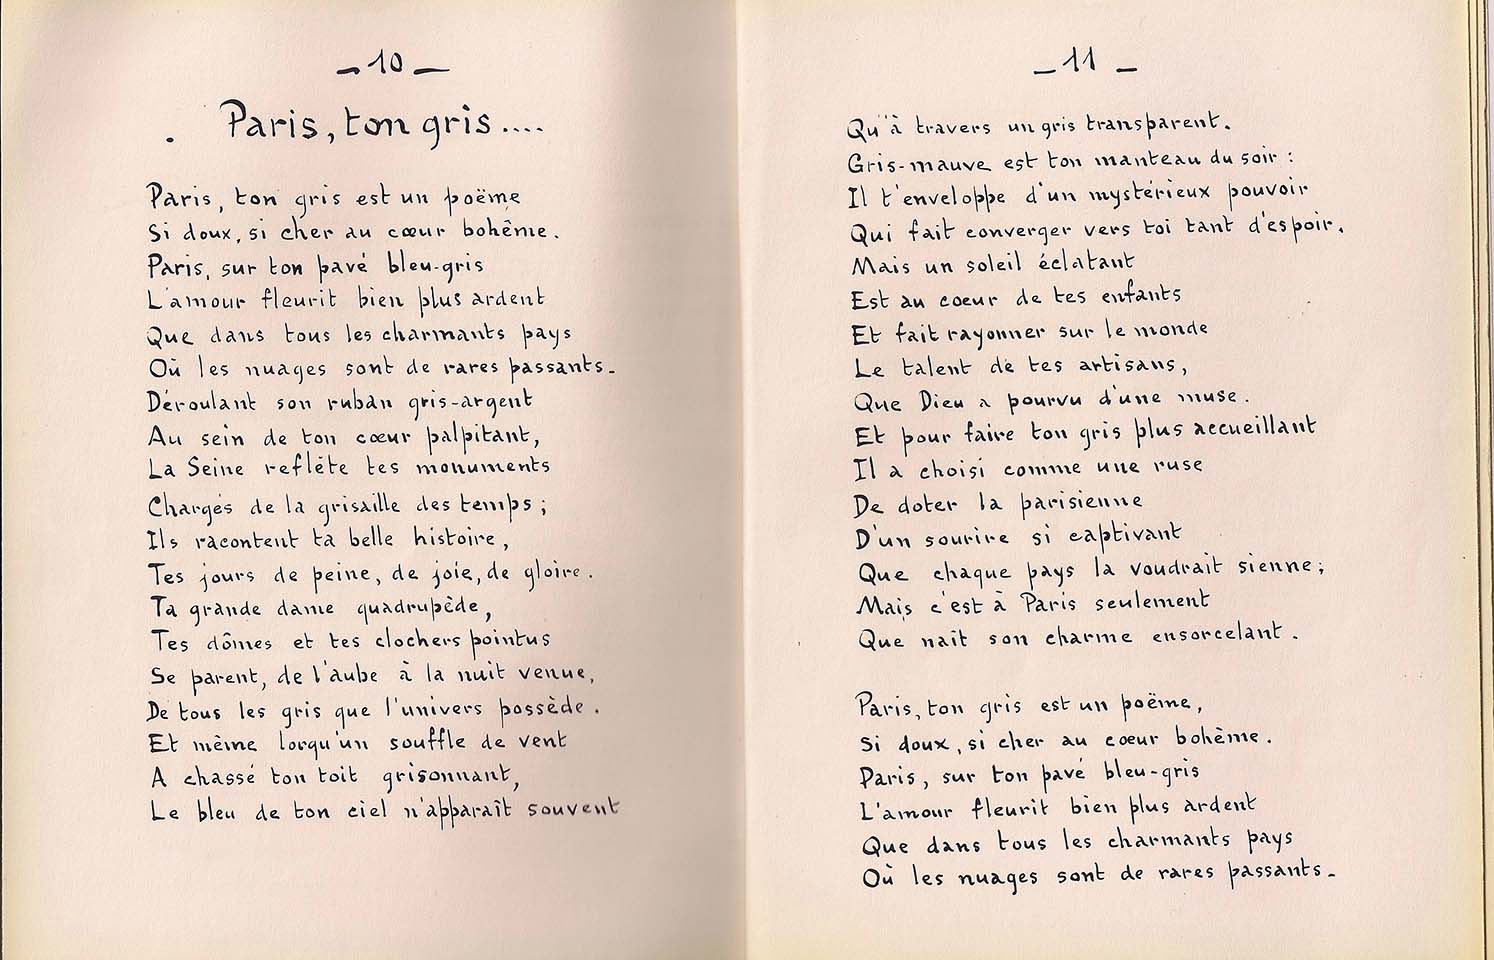 _ 10 _
. Paris, ton gris....
Paris, ton gris est un poëme
Si doux, si cher au cœur bohême.
Paris, sur ton pavé bleu-gris
L'amour fleurit bien plus ardent
Que dans tous les charmants pays
Où les nuages sont de rares passants_
Déroulant son ruban gris-argent
Au sein de ton cœur palpitant,
La Seine reflète tes monuments
Chargés de la grisaille des temps ;
Ils racontent ta belle histoire,
Tes jours de peine, de joie, de gloire.
Ta grande dame quadrupède,
Tes dômes et tes clochers pointus
Se parent, de l'aube à la nuit venue,
De tous les gris que l'univers possède.
Et même lorqu'un souffle de vent
A chassé ton toit grisonnant,
Le bleu de ton ciel n'apparaît souvent
_ 11 _
Qu'à travers un gris transparent.
Gris-mauve est ton manteau du soir :
Il t'enveloppe d'un mystérieux pouvoir
Qui fait converger vers toi tant d'espoir.
Mais un soleil éclatant
Est au coeur de tes enfants
Et fait rayonner sur le monde
Le talent de tes artisans,
Que Dieu a pourvu d'une muse.
Et pour faire ton gris plus accueillant
Il a choisi comme une ruse
De doter la parisienne
D'un sourire si captivant
Que chaque pays la voudrait sienne ;
Mais c'est à Paris seulement
Que naît son charme ensorcelant.
Paris, ton gris est un poëme,
Si doux, si cher au coeur bohême.
Paris, sur ton pavé bleu-gris
L'amour fleurit bien plus ardent
Que dans tous les charmants pays
Où les nuages sont de rares passants_